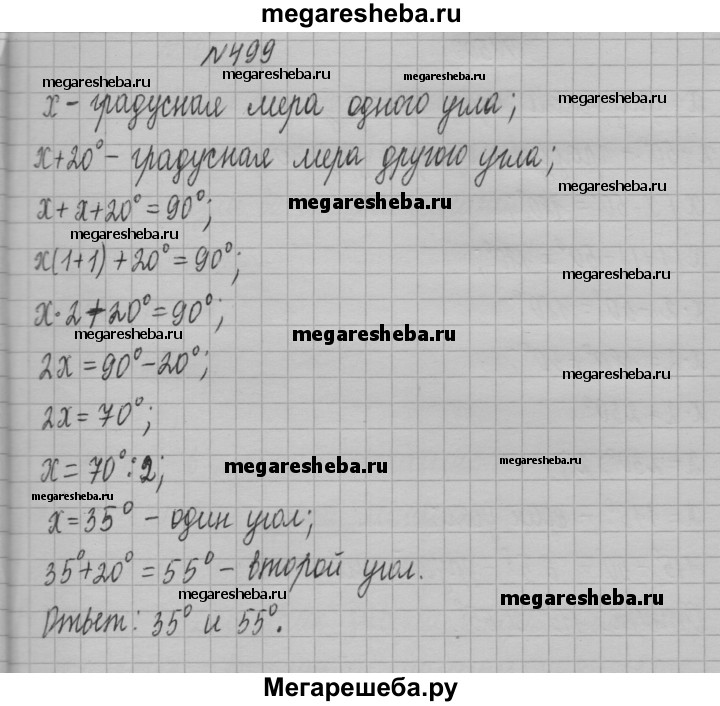 megaresheba.ru
№499
megaresheba.ru megaresheba.ru megaresheba.ru
x - градусная мера одного угла;
megaresheba.ru
x+20° - градусная мера другого угла;
megaresheba.ru
x + x + 20° = 90°;
megaresheba.ru
megaresheba.ru
x(1+1) + 20° = 90°;
megaresheba.ru
x · 2 + 20° = 90°;
megaresheba.ru megaresheba.ru
2x = 90° - 20°;
megaresheba.ru
2x = 70°;
x = 70° : 2;
megaresheba.ru megaresheba.ru
megaresheba.ru
x = 35° - один угол;
35° + 20° = 55° - второй угол.
megaresheba.ru megaresheba.ru
Ответ: 35° и 55°.
Мегарешеба.ру